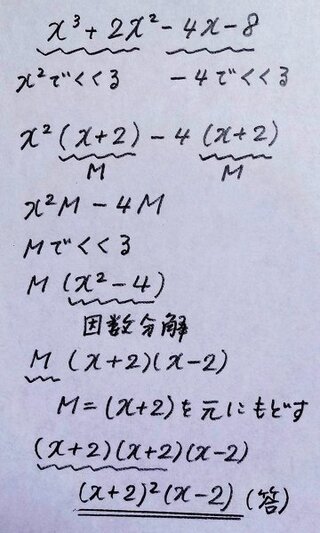 x³+2x²-4x-8
x²でくくる -4でくくる
x²(x+2)-4(x+2)
M M
x²M-4M
Mでくくる
M(x²-4)
因数分解
M(x+2)(x-2)
M=(x+2)を元にもどす
(x+2)(x+2)(x-2)
(x+2)²(x-2)(答)